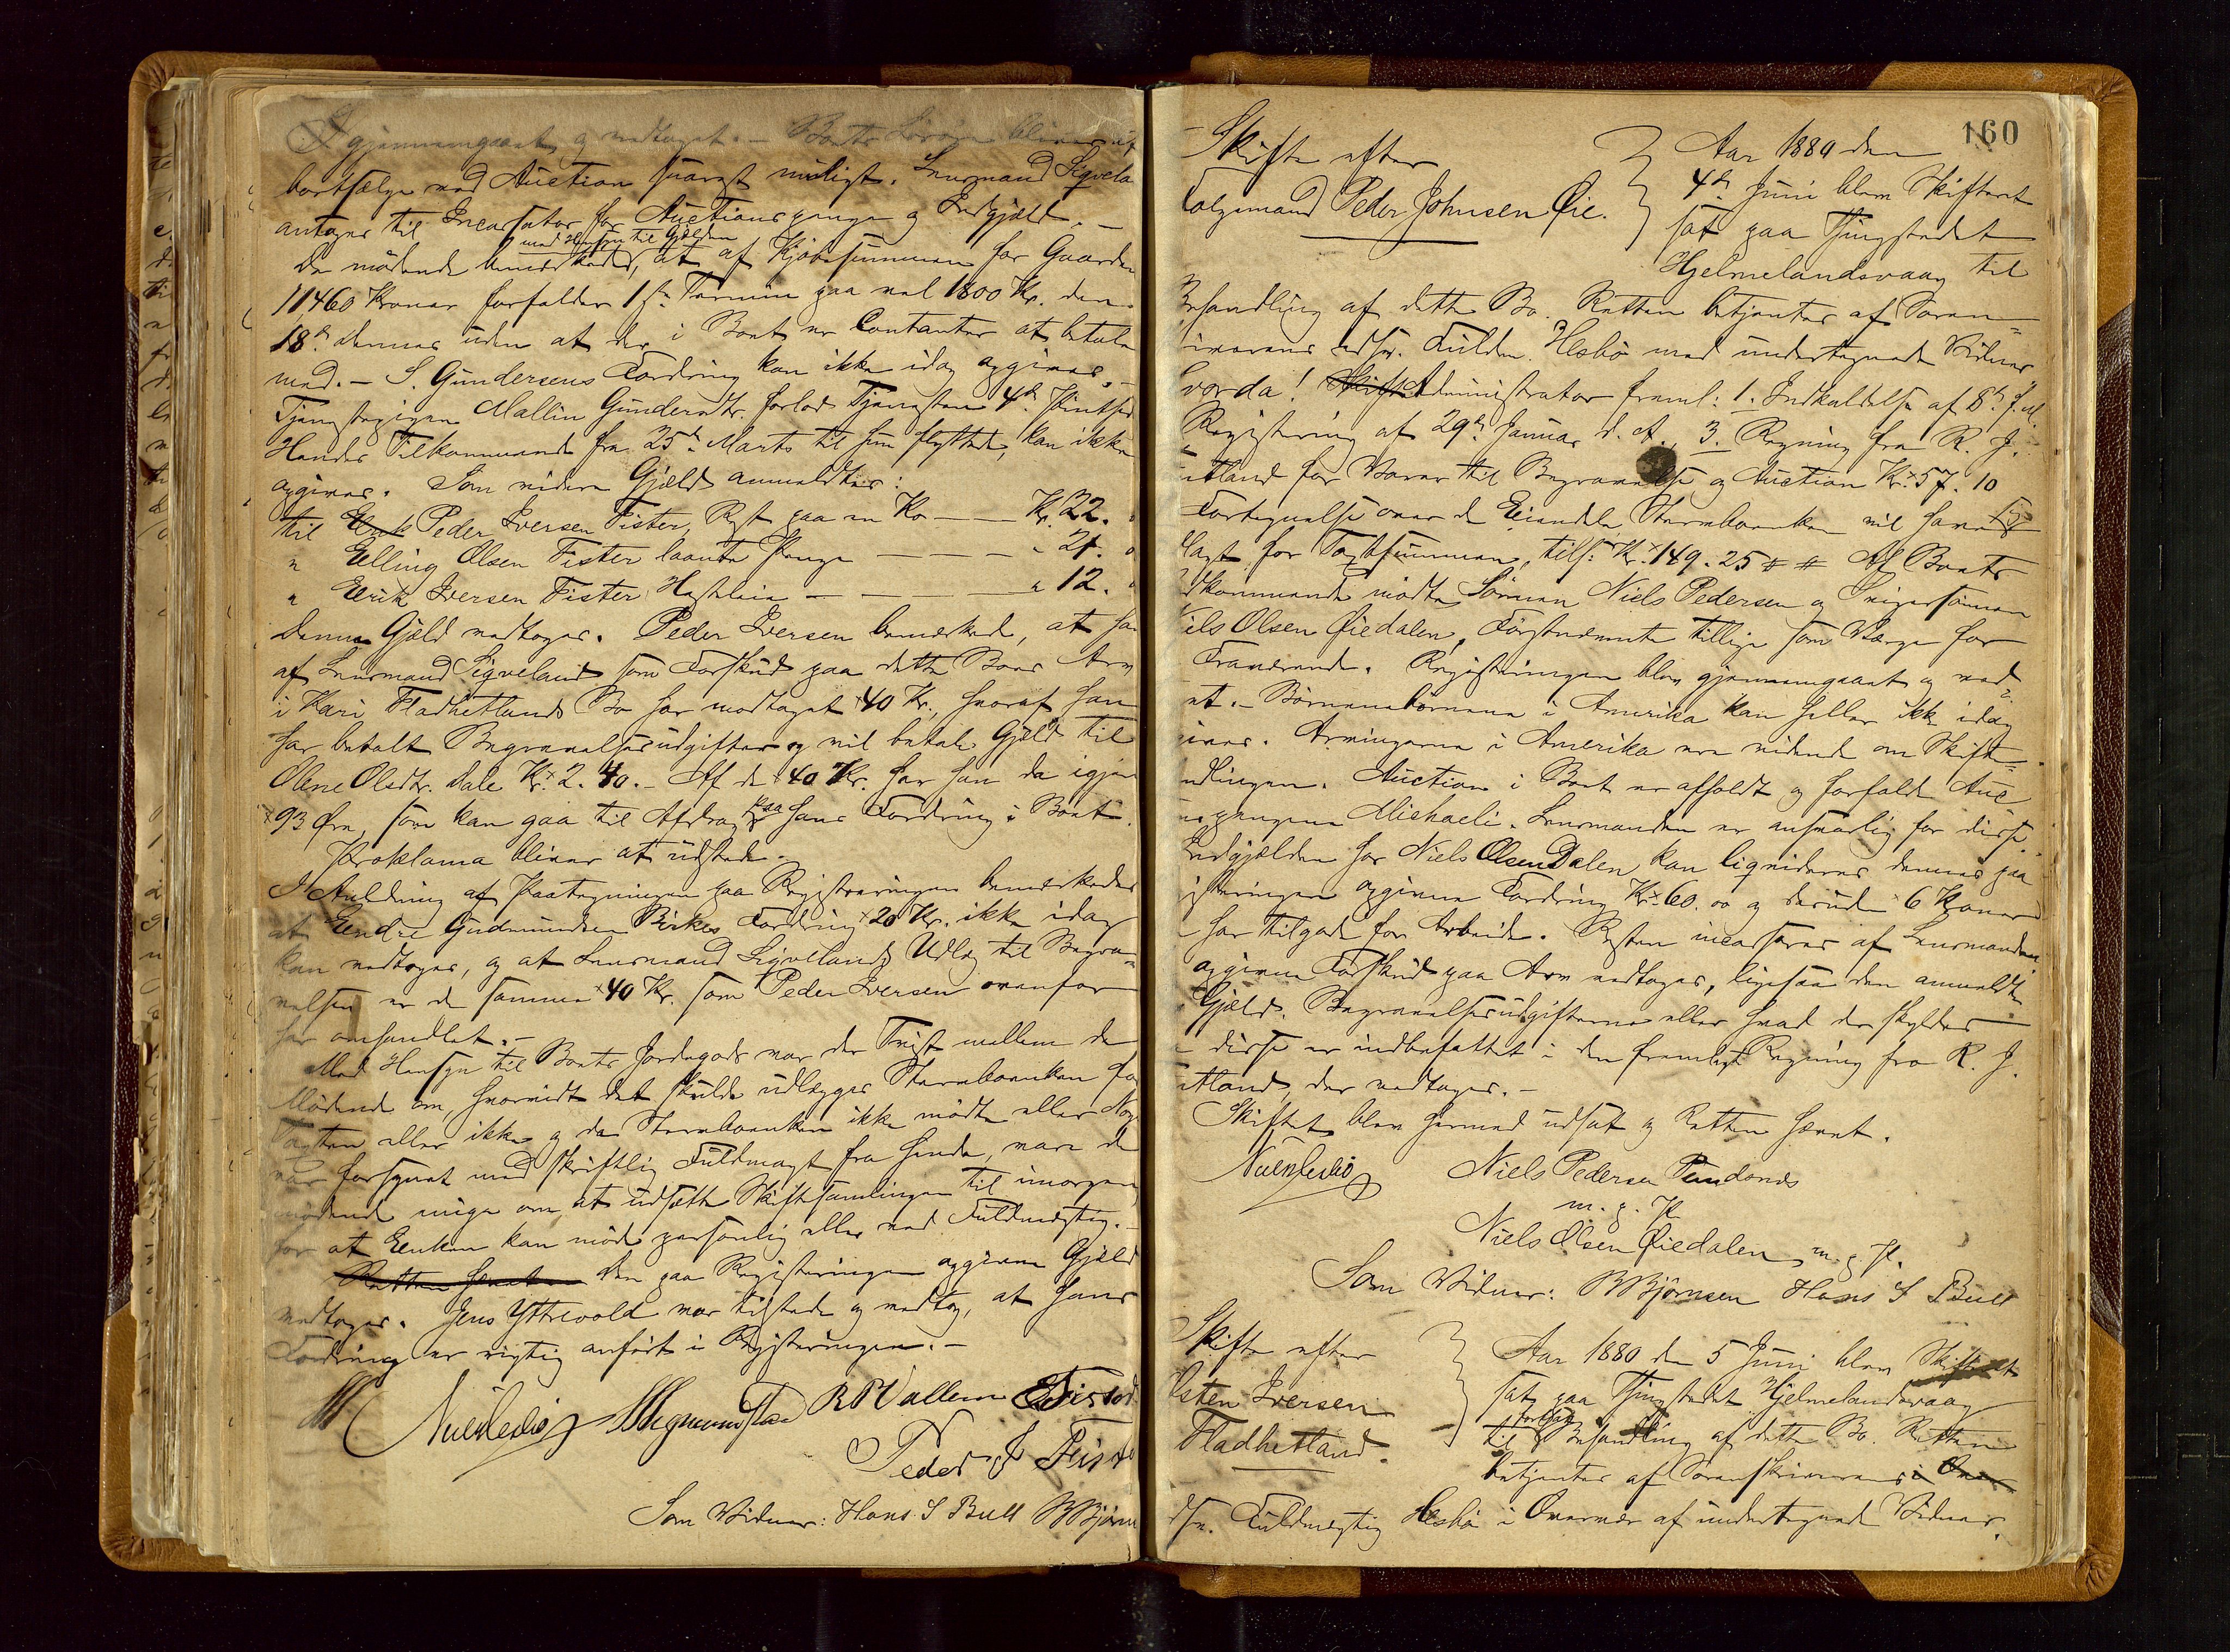 gjennemgaaet og vedtaget. – Boets Løsøre bliver at
bortsælge ved Auction snarest muligt. Lensmand Sigvela
antages til Incassator for Auctionspenge og Indgjæld. –
med Hensyn til Gjælden
De mødende bemærkede, at af Kjøbesummen for Gaarden
11,460 Kroner forfalder 1ste Termin paa vel 1800 Kr. den
18de dennes uden at der i Boet er Contanter at betale
med. – S. Gundersens Fordring kan ikke idag opgives. –
Tjenestepigen Mallin Gundersdtr. forlod Tjenesten 4de
Hendes Tilkommende fra 25de Marts til hun flyttede, kan ikke
opgives. Som videre Gjæld anmeldtes:
til Peder Iversen Fister, Rest paa en Ko — Kr. 22.
" Elling Olsen Fister laante Penge — — — " 21.
" Eerik Iversen Fister Hesteleie — — — " 12.
Denne Gjæld vedtoges. Peder Iversen bemærkede, at ha
af Lensmand Sigveland som Forskud paa dette Boes Arv
i Kari Fladhetlands Bo har modtaget 40 Kr., hvoraf han
har betalt Begravelsesudgifter og vil betale Gjæld til
Olene Olsdtr. Dale Kr. 2.40. – Af de 40 Kr. har han da igjen
93 Øre, som kan gaa til Afdrag paa hans Fordring i Boet.
Proklama bliver at udstede.
I Anledning af Paategningen paa Registreringen bemærkedes
at Endre Gudmundsen Birkes Fordring 20 Kr. ikke idag
kan vedtages, og at Lensmand Sigvelands Udlæg til Begra-
velsen er de samme 40 Kr. som Peder Iversen ovenfor
har omhandlet. –
Med Hensyn til Boets Jordegods var der Tvist mellem de
Mødende om, hvorvidt det skulde udlægges Stervboenken for
Taxten eller ikke og da Stervboenken ikke mødte eller Nog
var forsynet med skriftlig Fuldmagt fra hende, vare de
mødende enige om at udsætte Skiftesamlingen til imorgen
for at Enken kan møde personlig eller ved Fuldmægtig. –
Retten hævet Den paa Registreringen opgivne Gjæld
vedtoges. Jens Yttrevold var tilstede og vedtog, at hans
Fordring er rigtig anført i Registreringen. –
R P Vallem
Peder I Fist
Som Vidner: Hans S Bull B Bjørn
160
Skifte efter
Folgemand Peder Johnsen Øie.
Aar 1880 den
4de Juni blev Skifteret
sat paa Thingstedet
Hjelmelandsvaag til
Behandling af dette Bo. Retten betjentes af Soren-
skriverens edsv. Fuldm. Hesbø med undertegnede Vidner
Hvorda! Administrator freml: 1. Indkaldelse af 8de f. M.
Registrering af 29de Januar d. A., 3. Regning fra R. J.
tland for Varer til Begravelse og Auction Kr. 57.10
Fortegnelse over de Eiendele Stervboenken vil have
lagt for Taxtsummen, tils. Kr. 149.25 # # Af Boets
dkommende mødte Sønnen Niels Pedersen og Svigersønnen
Niels Olsen Øiedalen, Førstnævnte tillige som Værge for
Fraværende. Registreringen blev gjennemgaaet og ved-
et. – Børnenebørnene i Amerika kan heller ikke idag
gives. Arvingerne i Amerika ere vidende om Skifte-
ndlingen. Auction i Boet er afholdt og forfalde Auc
nspengene Mishaeli. Lensmanden er ansvarlig for disse.
Indgjælden hos Niels Olsen Dalen kan liqvideres dennes paa
istreringen opgivne Fordring Kr. 60.00 og desuden 6 Kroner
har tilgode for Arbeide. Resten incasseres af Lensmanden.
opgivne Forskud paa Arv vedtoges, ligesaa den anmeldte
Gjæld. Begravelsesudgifterne eller hvad der skyldes
disse er indbefattet i den fremlagte Regning fra R. J.
tland, der vedtoges. –
Skiftet blev hermed udsat og Retten hævet.
Niels Pedersen Sundsnds
m. p. P.
Niels Olsen Øiedalen m. p. P.
Som Vidner: B Bjørnsen Hans S Bull
Skifte efter
Osten Iversen
Fladhetland.
Aar 1880 den 5 Juni blev Skifteret
sat paa Thingstedet Hjelmelandsvaag
fortsat
til Behandling af dette Bo. Retten
betjentes af Sorenskriverens
edsv. Fuldmægtig Hesbø i Overvær af undertegnede Vidner.